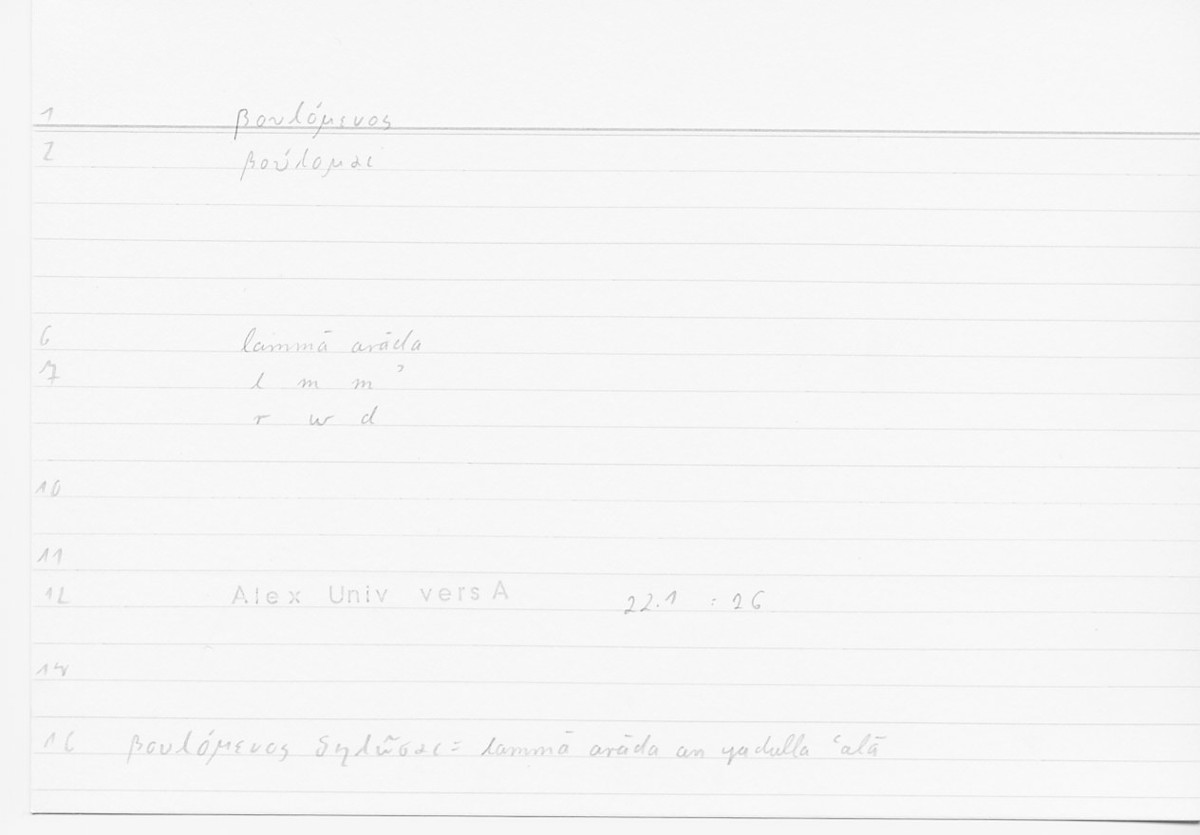 1 βουλόμενος
2 βούλομαι
6 lammā arāda
7 l m m ʾ
r w d
10
11
12 Alex Univ vers A 22.1 : 26
14
16 βουλόμενος δηλῶσαι = lammā arāda an yadulla ʿalā